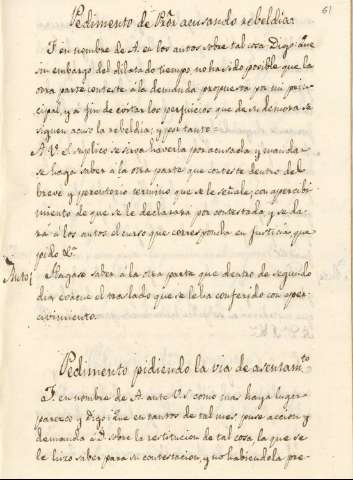 61
Pedimento de Prõr acusando rebeldia:
F. en nombre de A. en los autos sobre tal cosa, Digo: que
sin embargo del dilatado tiempo, no ha sido posible que la
otra parte conteste à la demanda propuesta por mi prin-
cipal, y à fin de cortar los perjuicios que de su demora se
siguen acuso la rebeldia; y por tanto =
A V. S. suplico se sirva haverla por acusada, y mandar
se haga saber à la otra parte que conteste dentro del
breve y perentorio termino que se le señale, con apercibi-
miento de que se le declarará por contestada, y se da-
rà à los autos el curso que corresponda en Justicia, que
pido &.ª
Auto
Hagase saber à la otra parte que dentro de segundo
dia evacue el traslado que se le ha conferido con aper-
civimiento.
Pedimento pidiendo la via de asentam.to
F. en nombre de A. ante V. S. como mas haya lugar
parezco y Digo: que en tantos de tal mes, puse accion y
demanda à D. sobre la restitucion de tal cosa, la que se
le hizo saber para su contestacion, y no habiendola pre-